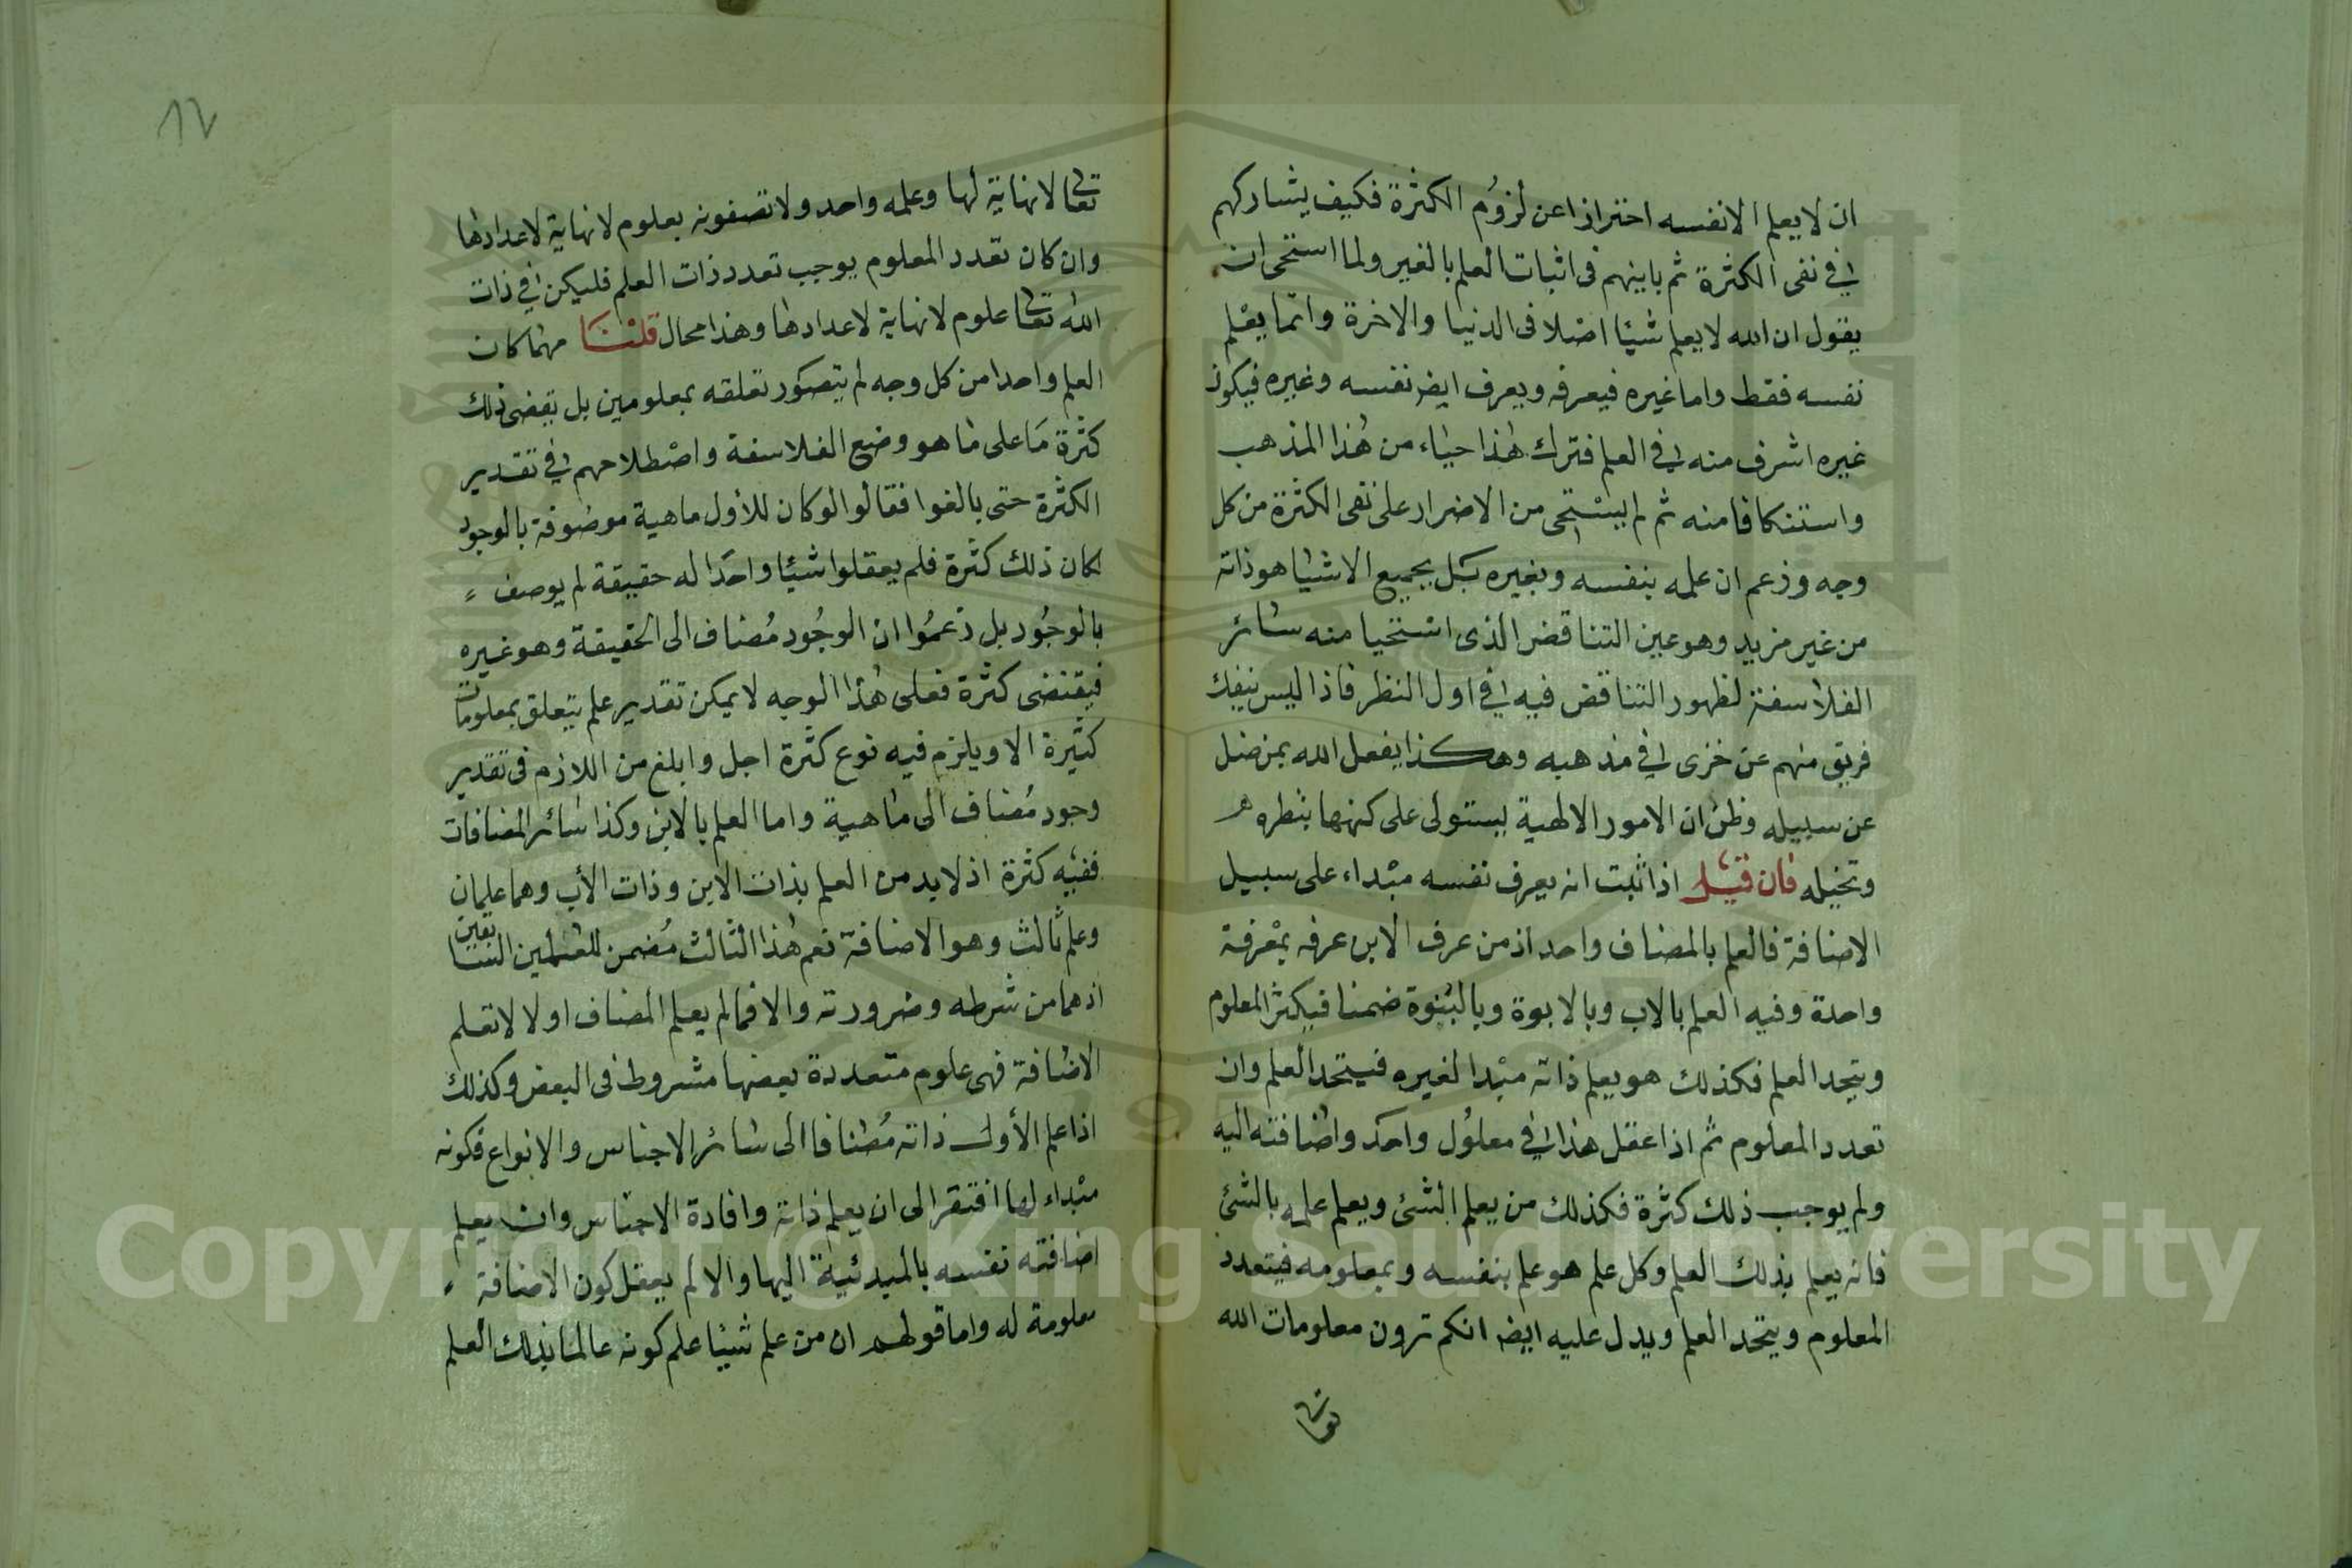 ان لا يعلم الا نفسه احترازا عن لزوم الكثرة فكيف يشاركهم
في نفى الكثرة ثم باينهم فى اثبات العلم بالغير ولما استحى ان
يقول ان الله لا يعلم شيئا اصلا فى الدنيا والاخرة وانما يعلم
نفسه فقط واما غيره فيعرفه ويعرف ايض نفسه وغيره فيكون
غيره اشرف منه في العلم فترك هذا حياء من هذا المذهب
واستنكافا منه ثم لم يستحى من الاضرار على نفى الكثرة من كل
وجه وزعم ان علمه بنفسه وبغيره بل بجميع الاشيا هو ذاته
من غير مزيد وهو عين التناقض الذى استحيا منه سائر
الفلاسفة لظهور التناقض فيه في اول النظر فاذا ليس ينفك
فريق منهم عن خزى في مذهبه وهكذا يفعل الله بمن ضل
عن سبيله وظن ان الامور الالهية يستولى على كنهها بنظره
وتخيله فان قيل اذا ثبت انه يعرف نفسه مبداء على سبيل
الاضافة فالعلم بالمضاف واحد اذ من عرف الابن عرفه بمعرفة
واحدة وفيه العلم بالاب وبالابوة وبالبنوة ضمنا فيكثر المعلوم
ويتحد العلم فكذلك هو يعلم ذاته مبدا لغيره فيتحد العلم وان
تعدد المعلوم ثم اذا عقل هذا في معلول واحد واضافته اليه
ولم يوجب ذلك كثرة فكذلك من يعلم الشئ ويعلم علمه بالشئ
فانه يعلم بذلك العلم وكل علم هو علم بنفسه وبمعلومه فيتعدد
المعلوم ويتحد العلم ويدل عليه ايض انكم ترون معلومات الله
١٧
تعالى لا نهاية لها وعلمه واحد ولا تصفونه بعلوم لا نهاية لاعدادها
وان كان تعدد المعلوم يوجب تعدد ذات العلم فليكن في ذات
الله تعالى علوم لا نهاية لاعدادها وهذا محال قلنا مهما كان
العلم واحدا من كل وجه لم يتصور تعلقه بمعلومين بل يقضى ذلك
كثرة ما على ما هو وضع الفلاسفة واصطلاحهم في تقدير
الكثرة حتى بالغوا فقالوا لو كان للأول ماهية موصوفة بالوجود
لكان ذلك كثرة فلم يعقلوا شيئا واحدا له حقيقة لم يوصف
بالوجود بل زعموا ان الوجود مضاف الى الحقيقة وهو غيره
فيقتضى كثرة فعلى هذا الوجه لا يمكن تقدير علم يتعلق بمعلومات
كثيرة الا ويلزم فيه نوع كثرة اجل وابلغ من اللازم فى تقدير
وجود مضاف الى ماهية واما العلم بالابن وكذا سائر المضافات
ففيه كثرة اذ لا بد من العلم بذات الابن وذات الأب وهما علمان
وعلم ثالث وهو الاضافة نعم هذا الثالث مضمن للعلمين السابقين
اذ هما من شرطه وضرورته والا فما لم يعلم المضاف اولا لا تعلم
الاضافة فهى علوم متعددة بعضها مشروط فى البعض وكذلك
اذا علم الأول ذاته مضافا الى سائر الاجناس والانواع فكونه
مبداء لها افتقر الى ان يعلم ذاته وافادة الاجناس وان يعلم
اضافته نفسه بالمبدئية اليها والا لم يعقل كون الاضافة
معلومة له واما قولهم ان من علم شيئا علم كونه عالما بذلك العلم
Copyright © King Saud University